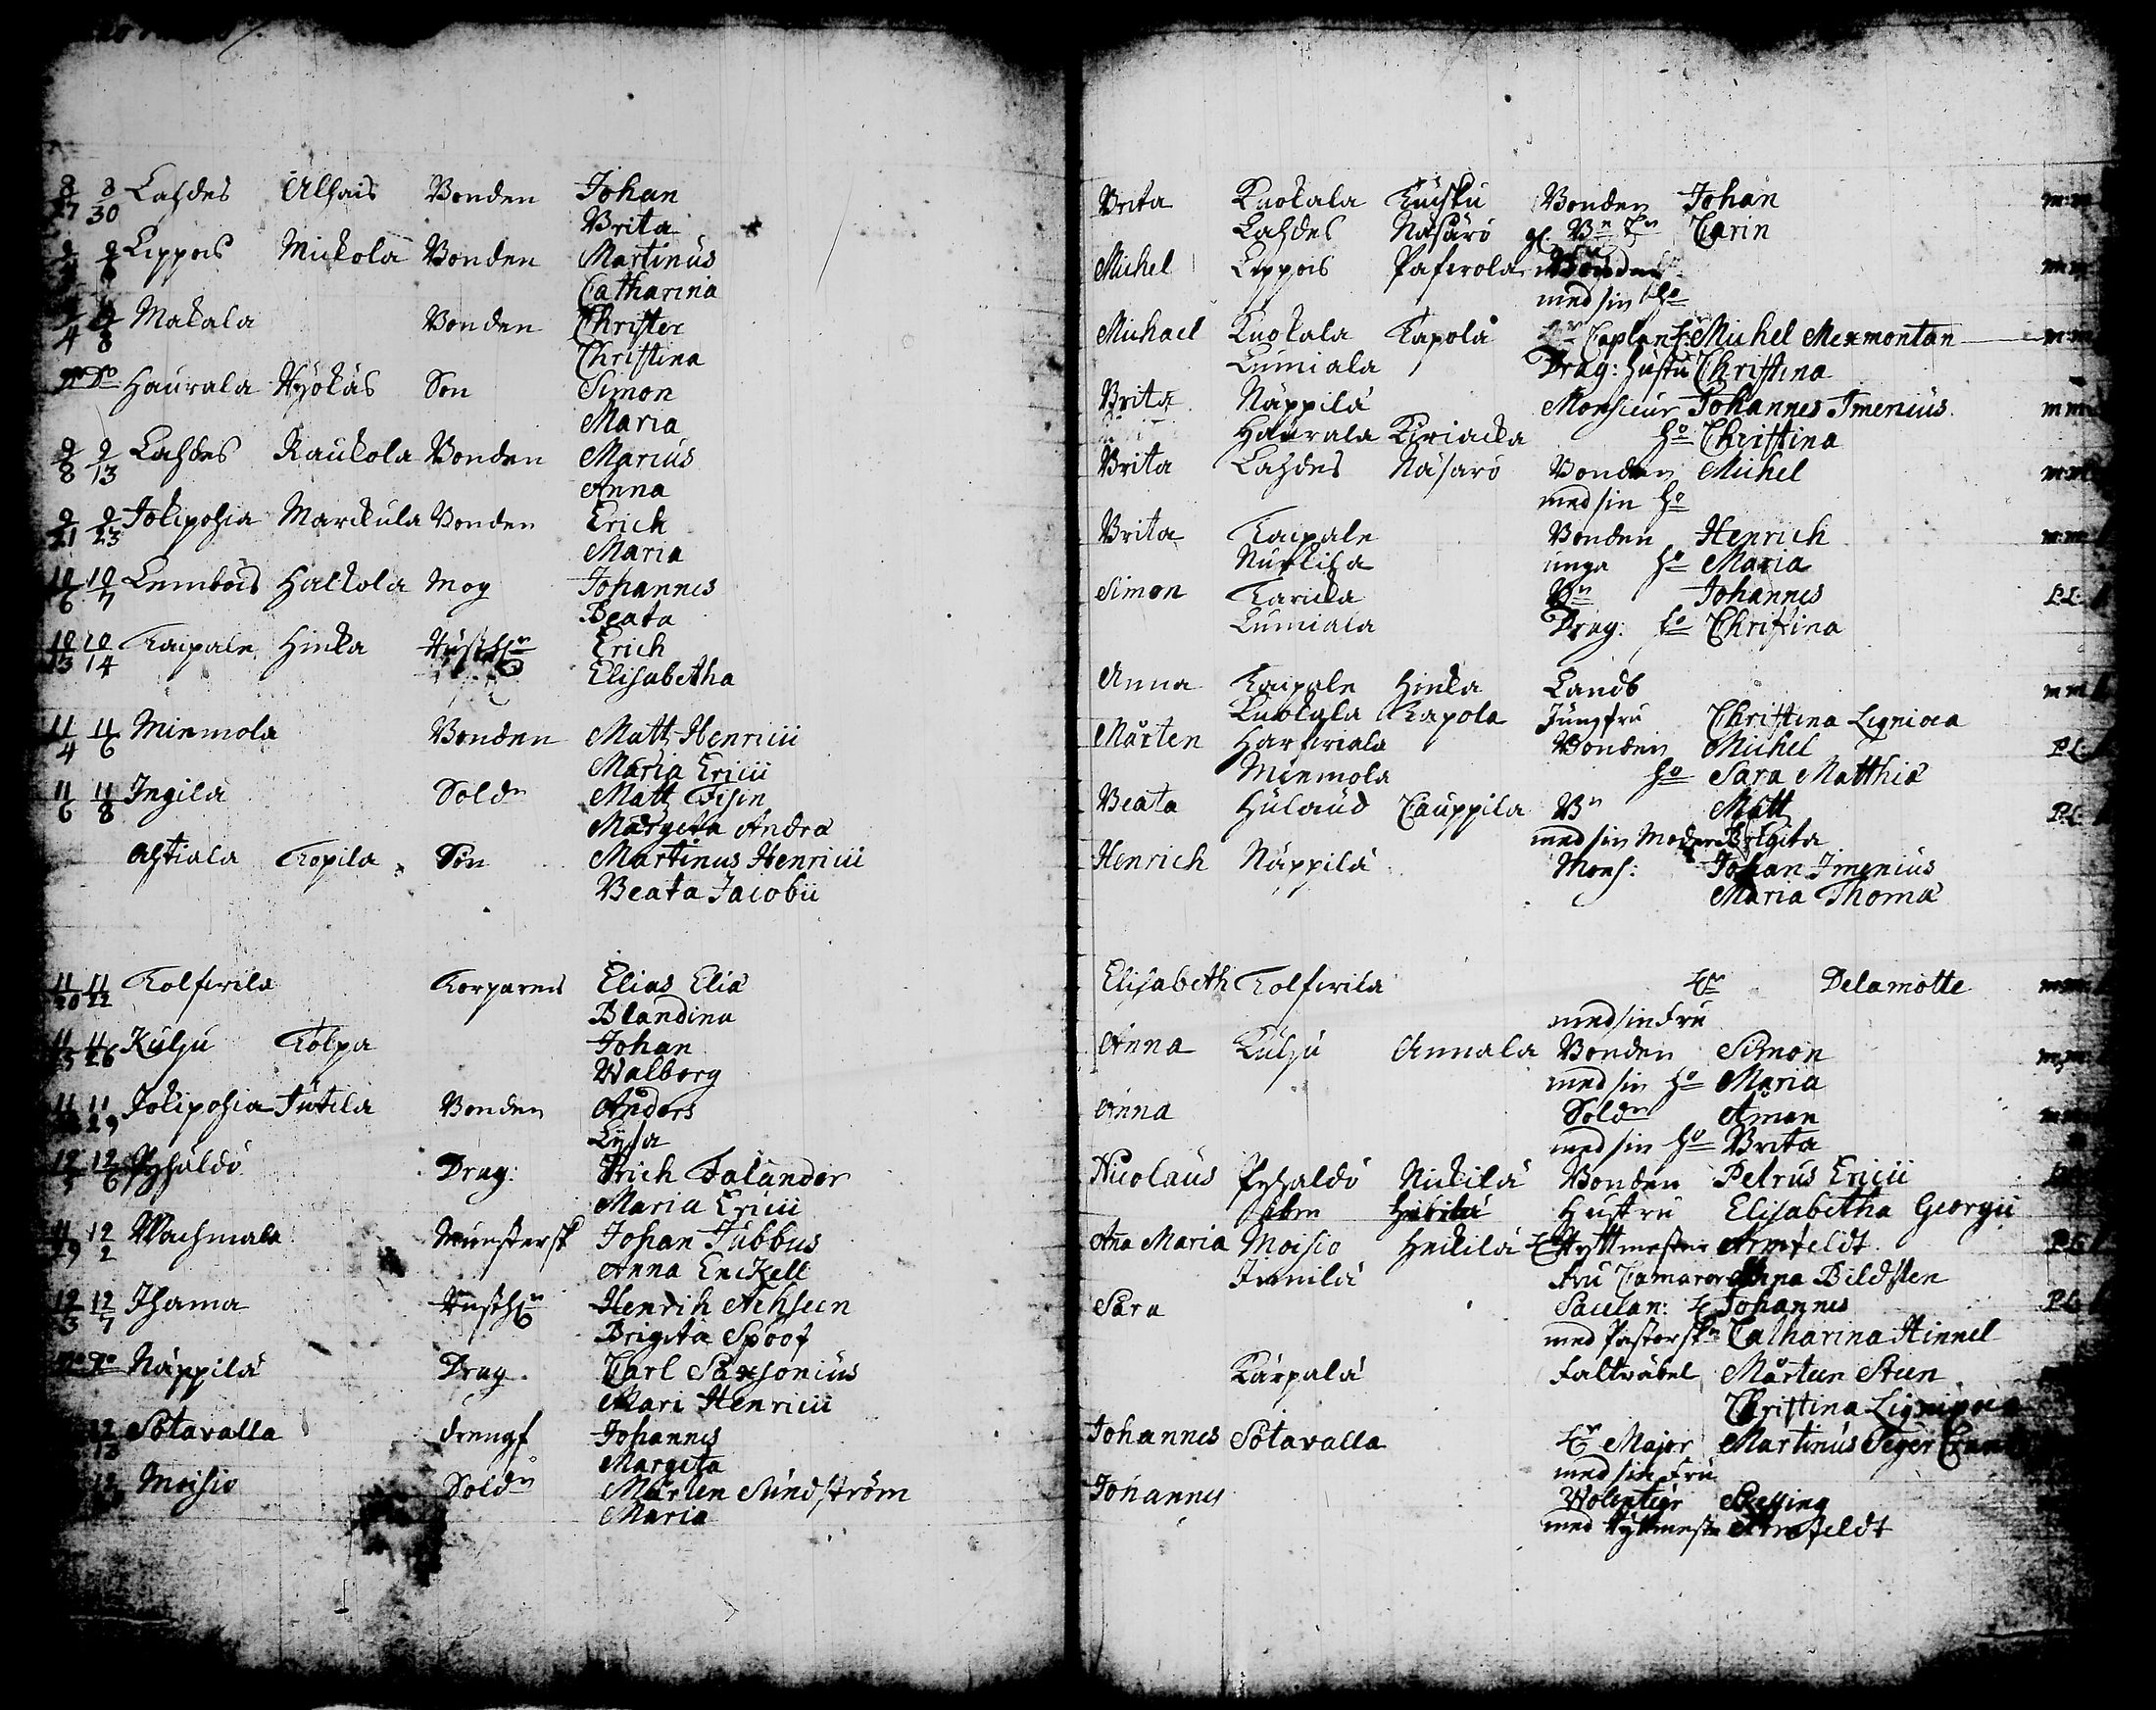 8/27 8/30 Lahdes Alhais Bonden Johan
Brita
Lippois Mickola Bonden Martinus
Catharina
9/4 9/8 Makala Bonden Christer
Christina
Do Do Haurala Hyökäs Son Simon
Maria
9/8 9/13 Lahdes Raukola Bonden Marcus
Anna
9/21 9/23 Jokipohia Marckula Bonden Erich
Maria
10/6 10/7 Lembois Halkola Moy Johannes
Beata
10/13 10/14 Kaipale Hinka Erich
Elisabetha
11/4 11/6 Minmola Bonden Matt Henrici
Maria Erici
11/6 11/8 Ingila Soldn Matt Fisin
Margeta Andræ
Ahtiala Kopila Son Martinus Henrici
Beata Jacobi
11/20 11/22 Kolkerila Korparens Elias Eliæ
Blandina
11/26 Kulju Kolpa Johan
Walborg
11/29 Jokipohia Jutila Bonden Anders
Lysa
12/6 Pyhäldö Drag: Erich Falander
Maria Erici
11/29 12/2 Wachmala Munstersk Johan Jubbus
Anna Enckell
12/3 12/7 Ihama Henrich Achseen
Brigeta Spoof
Do Do Näppilä Drag. Carl Saxsonius
Mari Henrici
12/13 Sotavalla Drengf Johannes
Margeta
Moisio Soldn Mårten Sundström
Maria
Brita Kuokala Kuisku Bonden Johan m:m
Lahdes Näsärö gl. Bn Carin
Michel Lippois Paserola Bonden m:m
med sin ho
Michael Kuokala Kapola Hr Caplan H: Michel Mexmontan m:m
Lumiala Drag: hustru Christina
Brita Näppilä Monsieur Johannes Imenius m m
Haurala Kiriacka ho Christina
Brita Lahdes Näsarö Bonden Michel m:m
med sin ho
Brita Kaipale Bonden Henrich m:m
unga ho Maria
Simon Karicka Bn Johannes
Lumiala Drag: ho Christina
Anna Kaipale Hinka Landb m m
Kuokala Kapola Jungfru Christina Lignioea
Mårten Bonden Michel
Minmola ho Sara Matthiæ
Beata Hulaud Cauppila Bn Matt PL
med sin Moder Brigita
Henrich Näppilä Mons: Johan Imenius
Maria Thomæ
Elisabeth Kolkerila Hr Delamotte m:m
med sin Fru
Anna Kulju Annala Bonden Simon m:m
med sin ho Maria
Anna Soldn Aman
med sin ho Brita
Nicolaus Pyhaldö Nickilä Bonden Petrus Erici
Hustru Elisabetha Georgii
Anna Maria Moisio Heikilä Hr Ryttmestar Armfeldt PL
Junnila Fru Camarer Anna Bildsten
Sara Sacelan: H Johannes PL
med Pastorskn Catharina Hinnel
Kärpälä Faltväbel Mårten Steen
Christina
Johannes Sotavalla Hr Major Martinus Teger
med sin Fru
Johannes Wolentier
med Ryttmestr Armfeldt